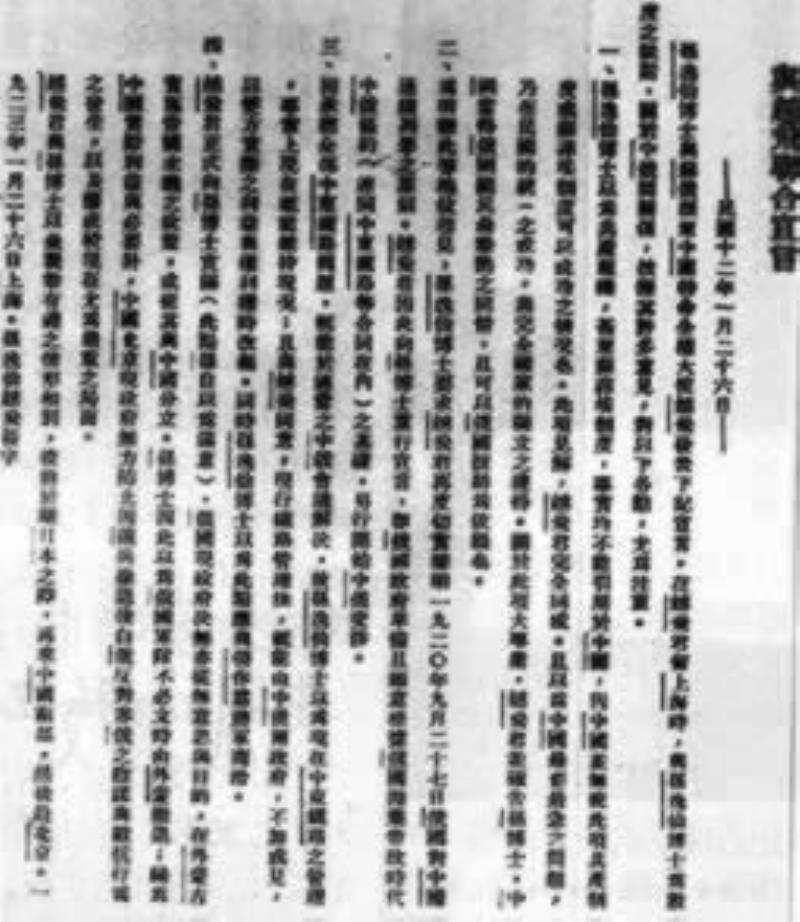 與越飛聯合宣言
——民國十二年一月二十六日——
孫逸仙博士與蘇俄派至中國特命全權大使越飛發表下記宣言。在越飛君留上海時,與孫逸仙博士為數
度之談話,關於中俄間關係,披陳其許多意見,對以下各點,尤為注重。
一、孫逸仙博士以為共產組織,甚至蘇維埃制度,事實均不能引用於中國,因中國並無使此項共產制
度或蘇維埃制度可以成功之情況也。此項見解,越飛君完全同感。且以為中國最要最急之問題,
乃在民國的統一之成功,與完全國家的獨立之獲得。關於此項大事業,越飛君並確告孫博士,中
國當得俄國國民最摯熱之同情,且可以俄國援助為依賴也。
二、為明瞭此等地位起見,孫逸仙博士要求越飛君再度切實聲明一九二〇年九月二十七日俄國對中國
通牒列舉之原則。越飛君因此向孫博士重行宣言,即俄國政府準備且願意根據俄國拋棄帝政時代
中俄條約(連同中東鐵路等合同在內)之基礎,另行開始中俄交涉。
三、因承認全部中東鐵路問題,祇能於適當之中俄會議解決,故孫逸仙博士以為現在中東鐵路之管理
,事實上現在祇能維持現況;且與越飛同意,現行鐵路管理法,祇能由中俄兩政府,不加成見,
以雙方實際之利益與權利權時改組。同時孫逸仙博士以為此點應與張作霖將軍商洽。
四、越飛君正式向孫博士宣稱(此點孫自以為滿意),俄國現政府決無亦從無意思與目的,在外蒙古
實施帝國主義之政策,或使其與中國分立。孫博士因此以為俄國軍隊不必立時由外蒙撤退;緣為
中國實際利益與必要計,中國北京現政府無力防止因俄兵撤退後白俄反對赤俄之陰謀與抵抗行為
之發生,以及釀成較現在尤為嚴重之局面。
越飛君與孫博士以最親摯有禮之情形相別,彼將於離日本之際,再來中國南部,然後赴北京。一
九二三年一月二十六日上海。孫逸仙越飛簽字